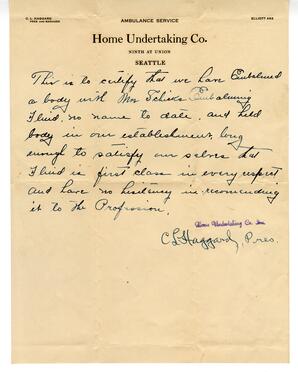 C. L. HAGGARD
PRES. AND MANAGER
AMBULANCE SERVICE
ELLIOTT
Home Undertaking Co.
NINTH AT UNION
SEATTLE
This is to certify that we have Embalmed
a body with Mr Embalming
Fluid, no name to date, and held
body in our establishment, long
enough to satisfy our selves that
Fluid is first class in every respect
and have no hisitency in recomending
it to the Profession.
Home Undertaking Co. Inc.
CL Haggard, Pres.